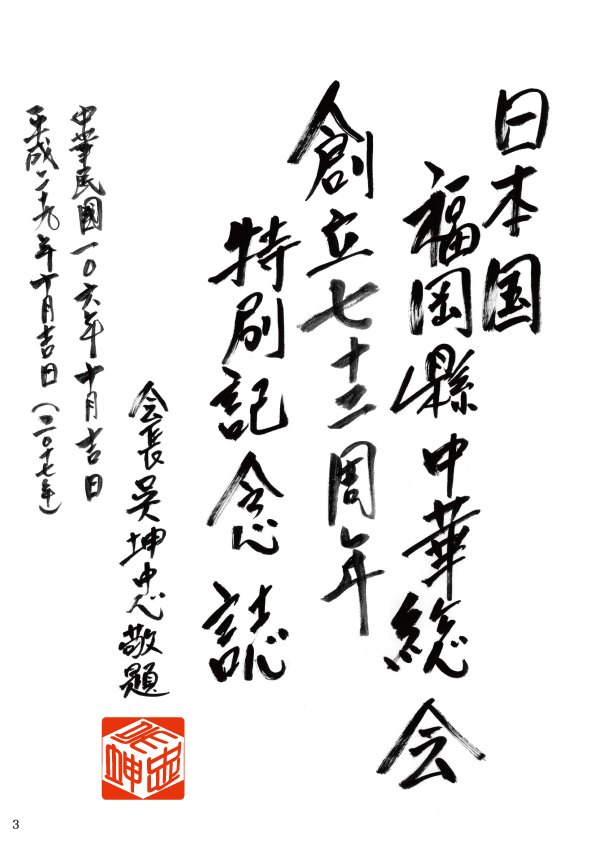 日本国
福岡縣中華総会
創立七十二周年
特刷記念誌
会長吳坤忠敬題
中華民國一〇六年十月吉日
平成二十九年十月吉日（二〇十七年）
吳坤忠
3